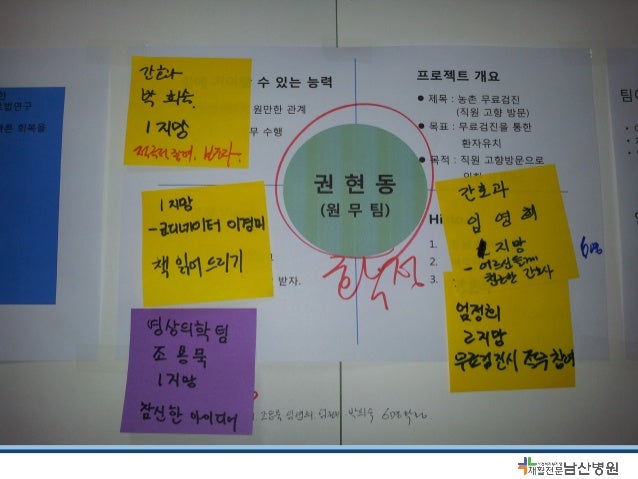 한
법연구
른 회복을
간호과
박 희숙
1지망
수 있는 능력
원만한 관계
무 수행
프로젝트 개요
● 제목 : 농촌 무료검진
(직원 고향 방문)
● 목표 : 무료검진을 통한
환자유치
● 목적 : 직원 고향방문으로
팀
권 현 동
(원 무 팀)
1지망
-코디네이터 이경미
책 읽어 드리기
받자.
확정
간호과
임 영 희
1지망
- 어르신들께
친근한 간호사
6명
Hi
1.
2.
3.
엄정희
2지망
무료검진시 적극참여
영상의학팀
조 용 묵
1지망
참신한 아이디어
재활전문남산병원